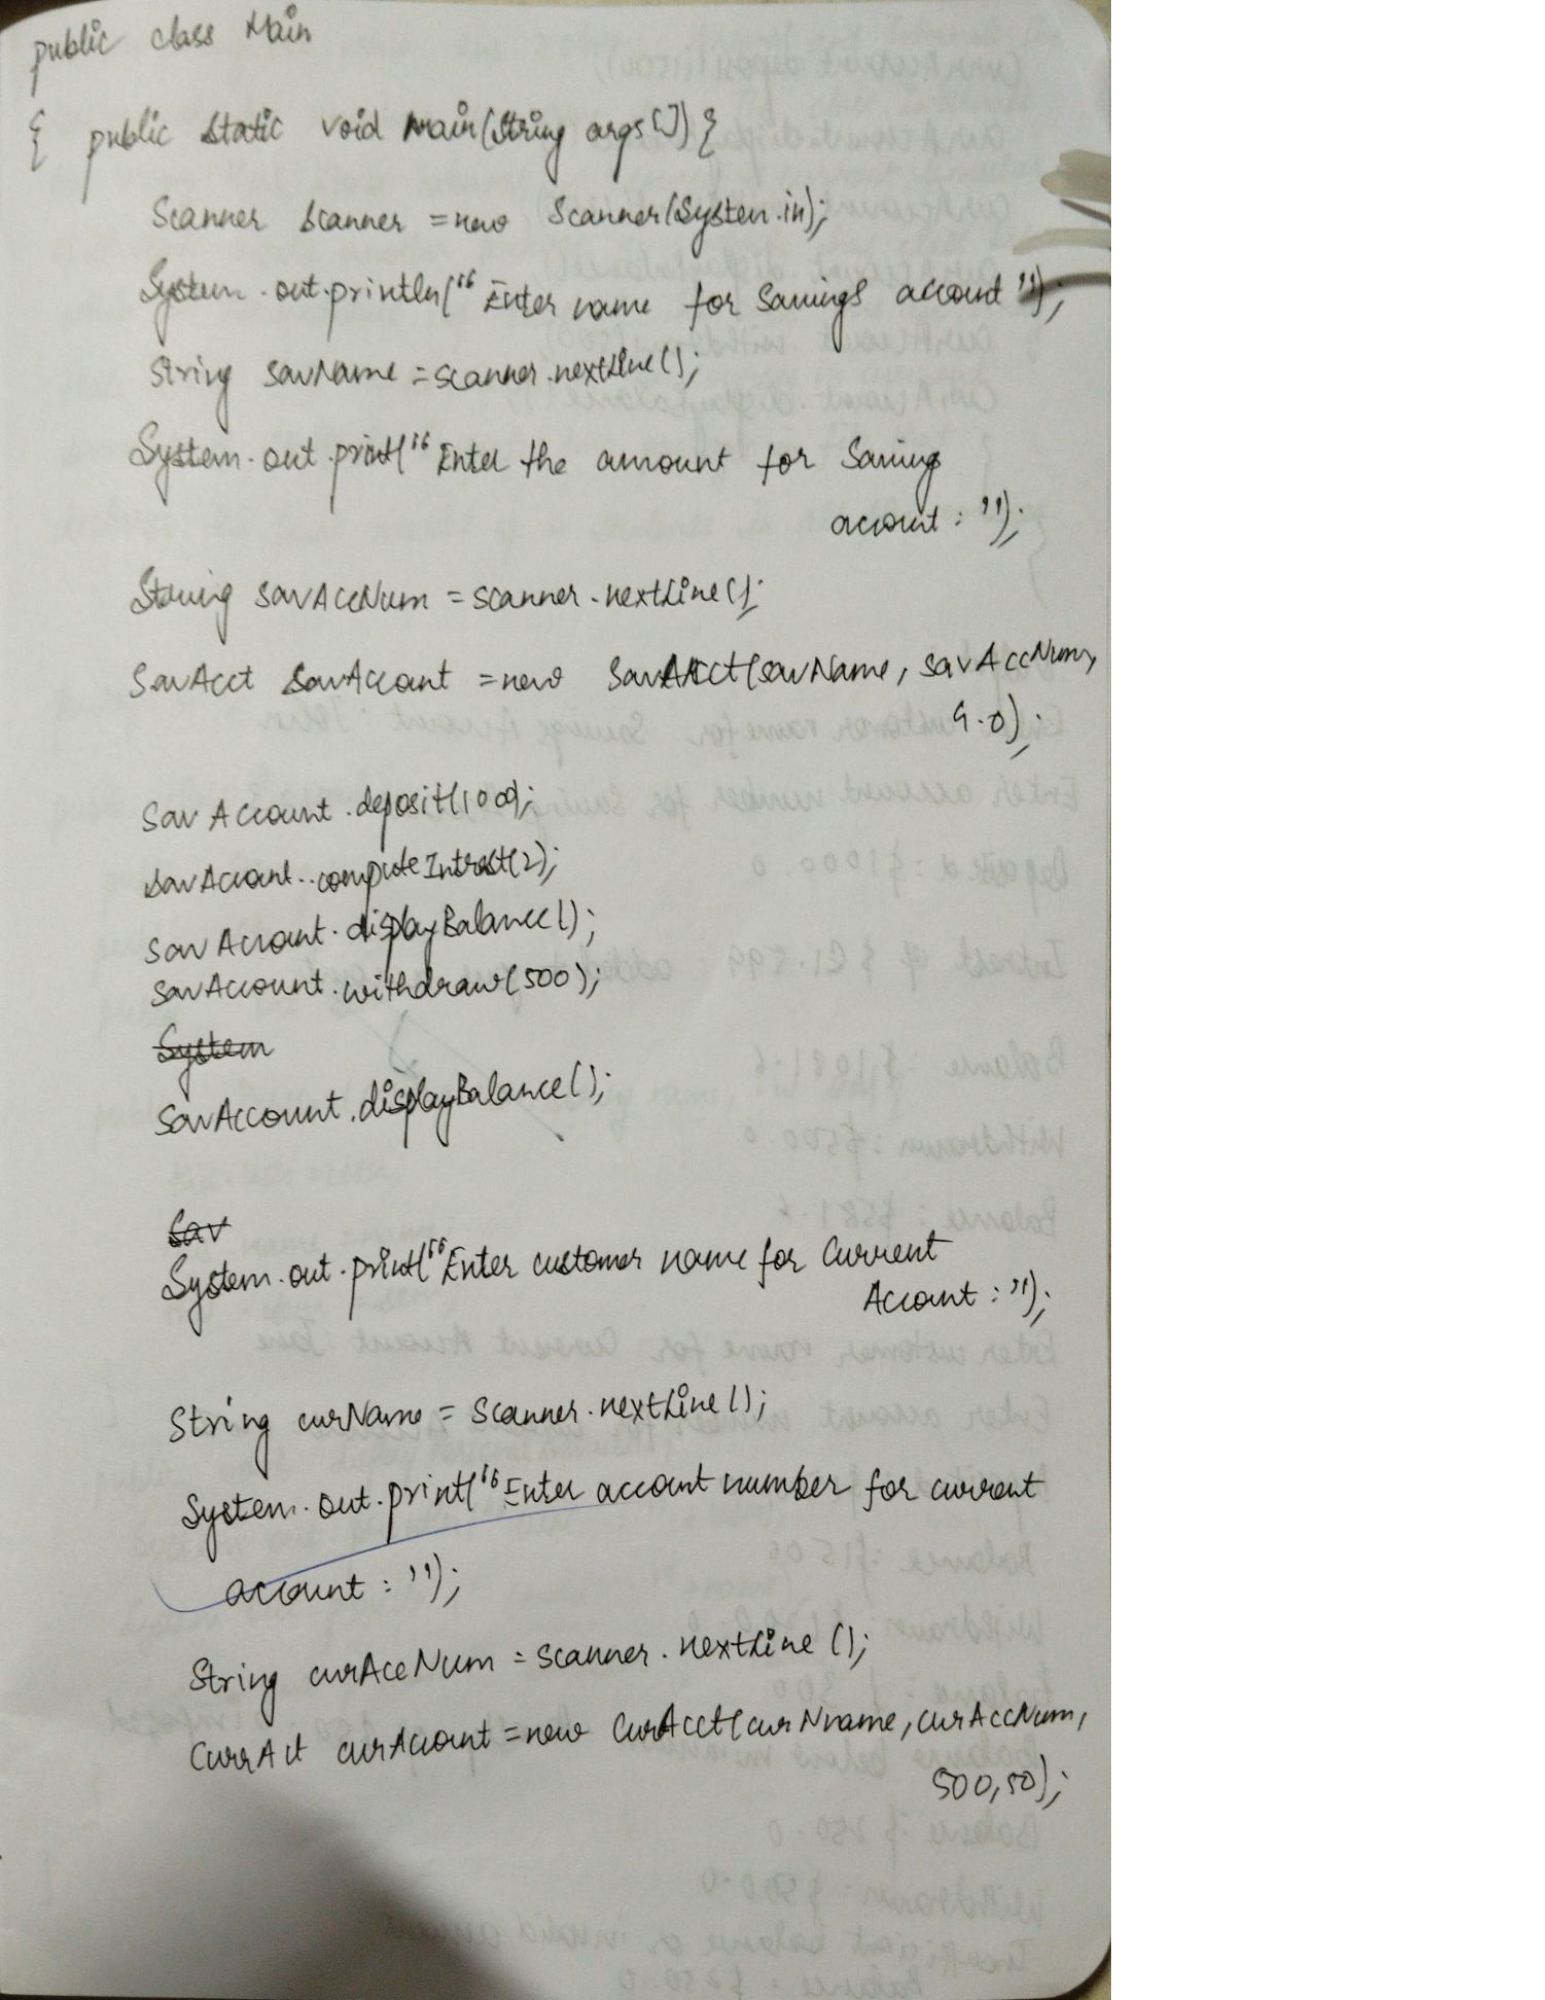 public class Main
{ public static void main(String args[]) {
Scanner scanner = new Scanner(System.in);
System.out.println("Enter name for Savings account");
String savName = scanner.nextLine();
System.out.print("Enter the amount for Saving
account : ");
String savAccNum = scanner.nextLine();
SavAcct SavAccount = new SavAcct(savName, savAccNum,
4.0);
SavAccount.deposit(1000);
savAccount.computeIntrest(2);
savAccount.displayBalance();
savAccount.withdraw(500);
System
SavAccount.displayBalance();
Sav
System.out.print("Enter customer name for Current
Account : ");
String curName = scanner.nextLine();
System.out.print("Enter account number for current
account : ");
String curAccNum = scanner.nextLine();
CurrAct curAccount = new CurAcct(curNname, curAccNum,
500,50);